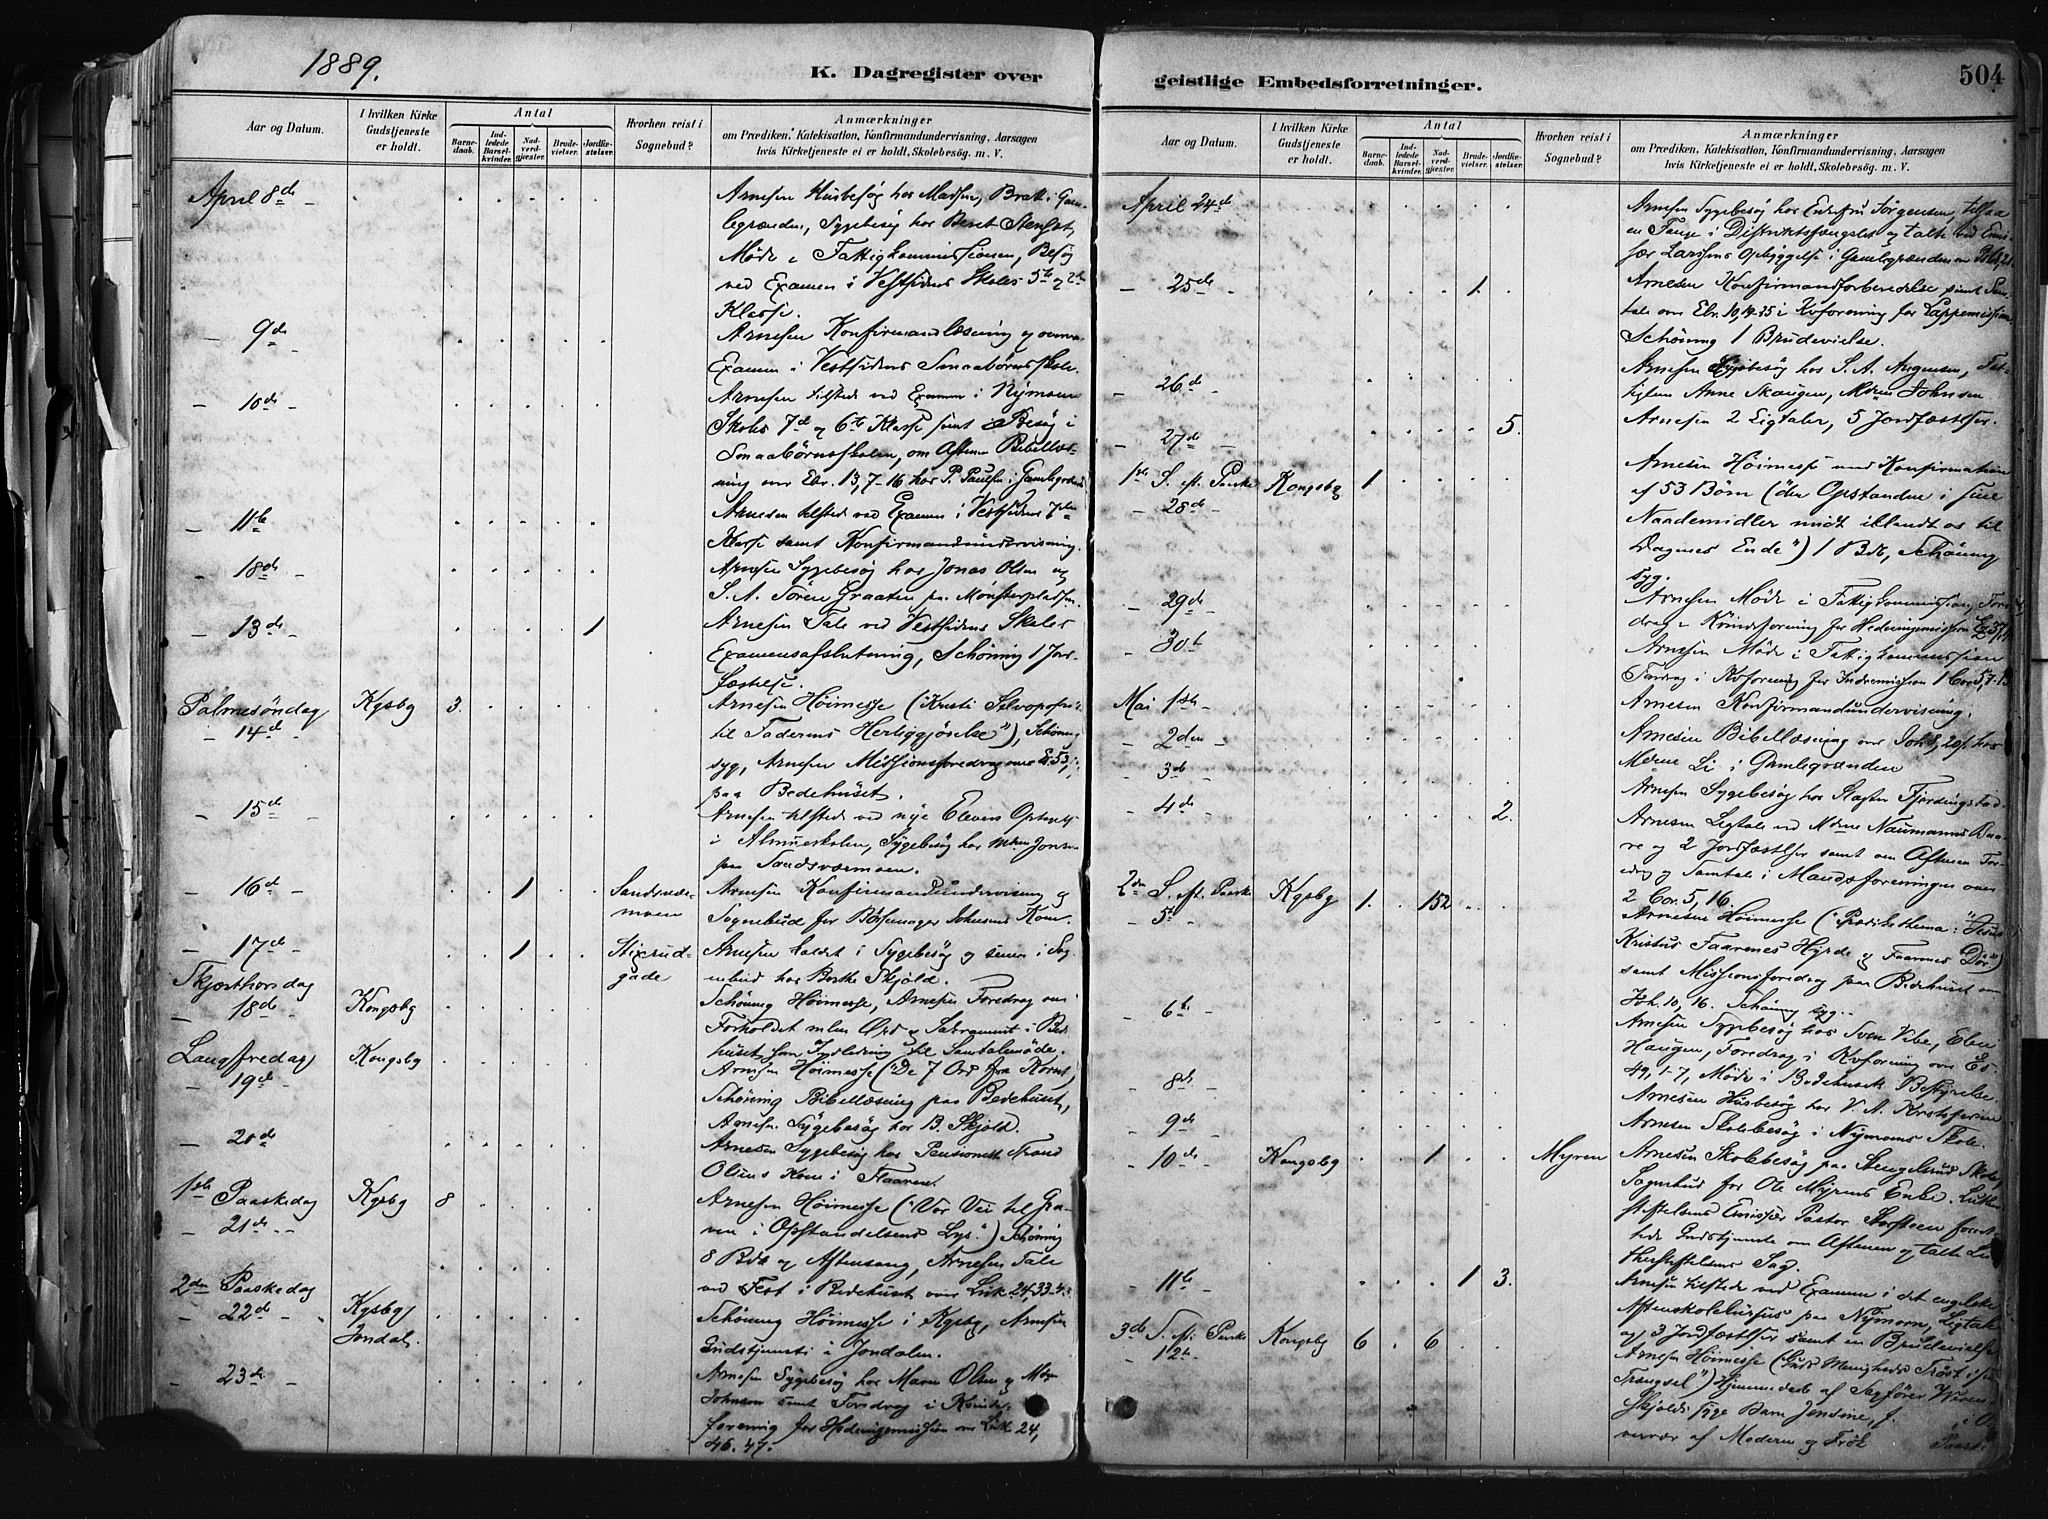 1889.
K. Dagregister over
Aar og Datum.
I hvilken Kirke Gudstjeneste er holdt.
Antal
Barnedaab.
Indledede Barselkvinder.
Nadverdgjæster.
Brudevielser.
Jordfæstelser.
Hvorhen reist i Sognebud?
Anmærkninger
om Prædiken, Katekisation, Konfirmandundervisning, Aarsagen
hvis Kirketjeneste ei er holdt, Skolebesög. m. V.
April 8de
Arnesen Husbesøg hos Madsen, Brat i Gam-
legrænden, Sygebesøg hos Beret
Møde i Fattigkommissionen, Besøg
ved Examen i Vestsidens Skoles 5te og 2den
Klasse.
— 9de —
Arnesen Konfirmandlæsning og
Examen i Vestsidens Smaabørnsskole.
— 10de —
Arnesen tilstede ved Examen i Nymoens
Skoles 7de og 6te Klasse samt Besøg i
Smaabørnsskolen, om Aftenen Bibellæs-
ning over Ebr. 13, 7-16 hos P. Paulsen i Gamlegrænden
— 11te
Arnesen tilstede ved Examen i Vestsidens 7de
Klasse samt Konfirmandundervisning.
— 18de —
Arnesen Sygebesøg hos Jonas Olsen og
S. A. Sören Graaten paa Mønsterpladsen.
— 13de —
1
Arnesen Tale ved Vestsidens Skoles
Examensafslutning, Schöning 1 Jord-
fæstelse.
Palmesöndag
Kgsbg
3.
— 14de —
Arnesen Höimesse ("Kristi Selvopofrelse
til Faderens Herliggjörelse"), Schöning
syg, Arnesen Missionsforedrag over Es. 53,
paa Bedehuset.
— 15de
Arnesen tilstede ved nye Elevers Optagelse
i Almueskolen, Sygebesøg hos Jonsen
paa Sandsværmoen.
— 16de —
1
Sandsvær-
moen
Arnesen Konfirmandundervisning og
Sognebud for Bössemager Johnsens Kone.
— 17de —
1
Stixrud-
gade
Arnesen kaldet i Sygebesøg og senere i Sog-
nebud hos Borthe Skjold.
Skjærthorsdag
— 18de —
Kongsbg
Schöning Höimesse, Arnesen Foredrag om
Forholdet mlm Ord og Sakrament i Bede-
huset som Indledning til Samtalemøde.
Langfredag
Kongsbg
— 19de —
Arnesen Höimesse ("De 7 Ord fra Korset")
Schöning Bibellæsning paa Bedehuset,
Arnesen Sygebesøg hos B. Skjold.
— 20de
Arnesen Sygebesøg hos Pensionist
Olsens Kone i
1ste Paaskedag
Kgsbg
8
— 21de —
Arnesen Höimesse ("Vor Vei til Gra-
ven i Opstandelsens Lys.") Schöning
8 Bdb og Aftensang, Arnesen Tale
ved Fest i Bedehuset over Luk. 24, 33-4
2den Paaskedag
— 22de —
Kgsbg
Jondal.
Schöning Höimesse i Kgsbg, Arnesen
Gudstjeneste i Jondalen.
— 23de —
Arnesen Sygebesøg hos Maren Olsen og
Johnsen samt Foredrag i Kvinde-
forening for Hedningemission om Luk. 24,
46. 47.
geistlige Embedsforretninger.
504
Aar og Datum.
I hvilken Kirke Gudstjeneste er holdt.
Antal
Barnedaab.
Indledede Barselkvinder.
Nadverdgjæster.
Brudevielser.
Jordfæstelser.
Hvorhen reist i Sognebud?
Anmærkninger
om Prædiken, Katekisation, Konfirmandundervisning, Aarsagen
hvis Kirketjeneste ei er holdt, Skolebesög. m. V.
April 24de
Arnesen Sygebesøg hos Enkefru Jørgensen, tilsaa
en Fange i Distriktsfængslet og talte ved Emis-
sær Larssens Opbyggelse i Gamlegrænden
— 25de —
1
Arnesen Konfirmandforberedelse samt Sam-
tale over Ebr. 10, 19-35 i Kvforening for Lappemission
Schöning 1 Brudevielse.
26de —
Arnesen Sygebesøg hos S. A. Fat-
tiglem Anne Skaugen, Johnsen
— 27de —
5.
Arnesen 2 Ligtaler, 5 Jordfæstelser.
1ste S. eft. Paaske
— 28de —
Kongsbg
1
Arnesen Höimesse med Konfirmation
af 53 Børn (den Opstandne i sine
Naademidler midt iblandt os til
Dagenes Ende") 1 Bdb, Schöning
syg.
— 29de —
Arnesen Møde i Fattigkommission, Fore-
drag i Kvindeforening for Hedningemission
— 30te
Arnesen Møde i Fattigkommission
Foredrag i Kvforening for Indremission 1 Cor. 5, 7-13
Mai 1ste —
Arnesen Konfirmandundervisning.
— 2den —
Arnesen Bibellæsning over Joh. 8, 20f. hos
Li i Gamlegrænden
— 3de —
Arnesen Sygebesøg hos
— 4de —
2.
Arnesen Ligtale ved Naumanns Baa-
re og 2 Jordfæstelser samt om Aftenen Fore-
drag og Samtale i Mandsforeningen over
2 Cor. 5, 16.
2den S. eft. Paaske
— 5te —
Kgsbg
1.
152
Arnesen Höimesse ("Prædikethema: "Jesus
Kristus Faarenes Hyrde og Faarenes Dör")
samt Missionsforedrag paa Bedehuset om
Joh. 10, 16. Schöning syg.
— 6te —
Arnesen Sygebesøg hos Sven Vibe,
Haugen, Foredrag i Kvforening over Es.
49, 1-7, Møde i Bedehusets Bestyrelse.
— 8de —
Arnesen Husbesøg hos V. A. Kristofersen
— 9de —
Arnesen Skolebesøg i Nymoens Skole.
— 10de —
Kongsbg
1
Myren
Arnesen Skolebesøg paa Stengelsrud Skole,
Sognebud for Ole Myrens Enke. Luther-
stiftelsens Emissær Pastor Storsteen forret-
tede Gudstjeneste om Aftenen og talte Lu-
therstiftelsens Sag.
— 11te —
1
3.
Arnesen tilstede ved Examen i det engelske
Aftenskolekursus paa Nymoen, Ligtale
og 3 Jordfæstelser samt en Brudevielse
3de S. eft. Paaske
— 12te —
Kongsbg
6
6
Arnesen Höimesse (Guds Menigheds Tröst i sin
Trængsel") Hjemmedaab af Sagförer
Skjoldts syge Barn Jensine, f.
værær af Moderen og Frök